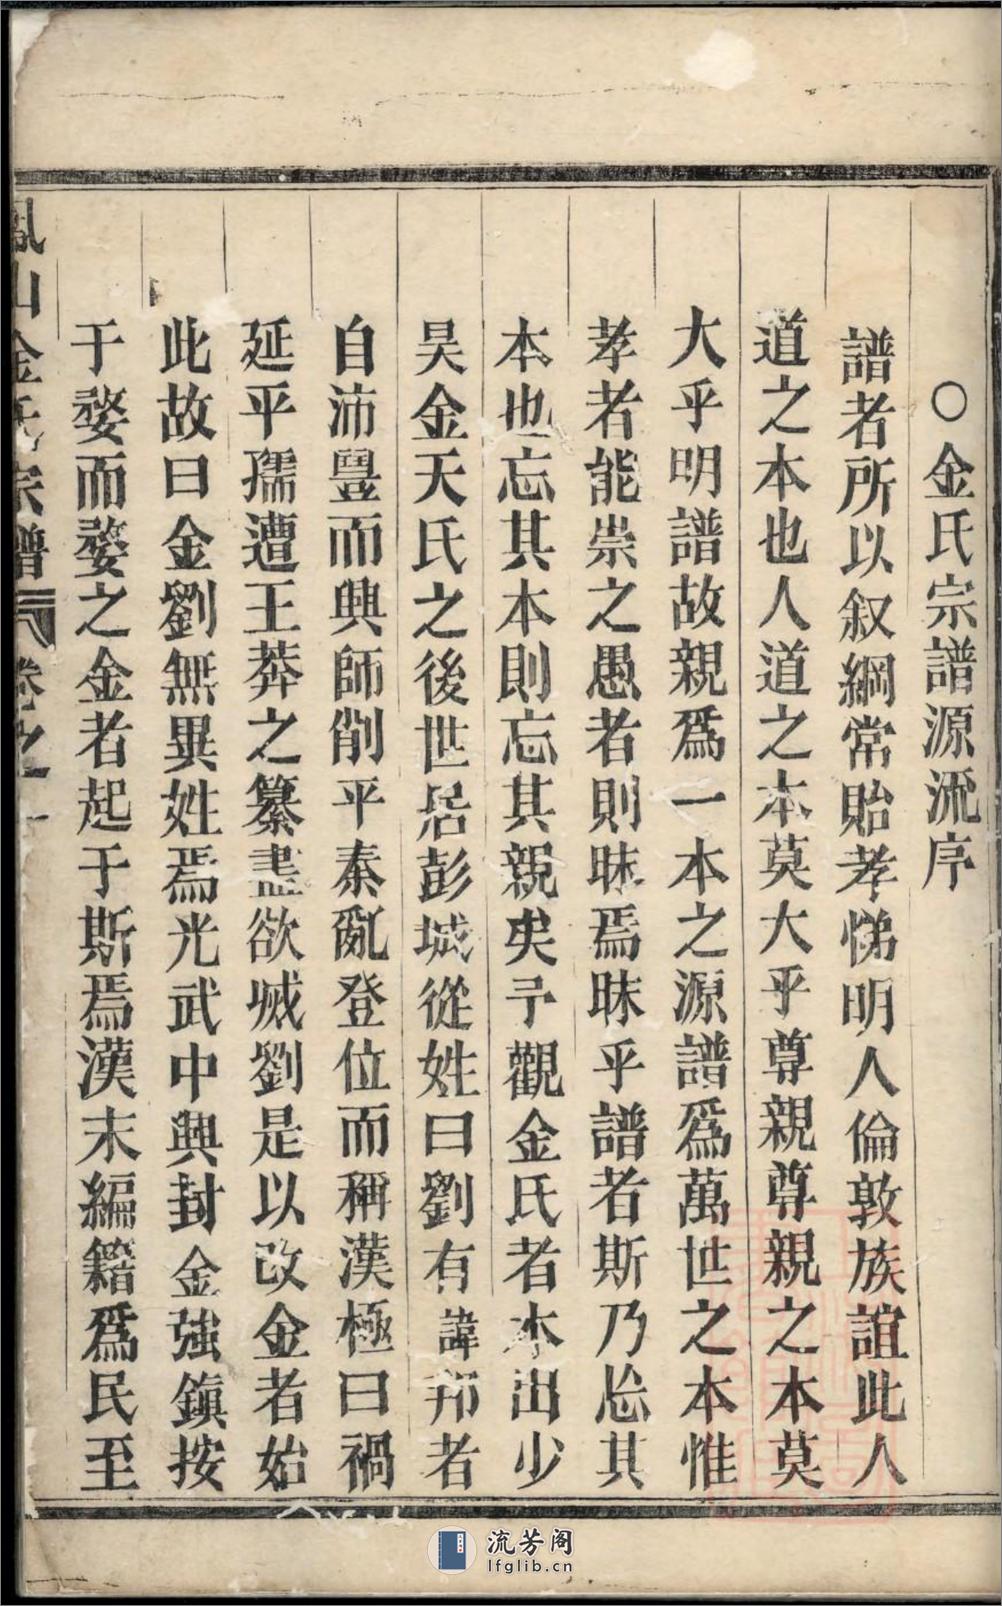 ○金氏宗譜源流序
譜者所以叙綱常貽孝悌明人倫敦族誼此人
道之本也人道之本莫大乎尊親尊親之本莫
大乎明譜故親爲一本之源譜爲萬世之本惟
孝者能崇之愚者則昧焉昧乎譜者斯乃忘其
本也忘其本則忘其親矣予觀金氏者本出少
昊金天氏之後世居彭城從姓曰劉有諱邦者
自沛豊而興師削平秦亂登位而稱漢極曰禍
延平孺遭王莽之纂盡欲滅劉是以改金者始
此故曰金劉無異姓焉光武中興封金強鎮按
于婺而婺之金者起于斯焉漢末編籍爲民至
鳳山金氏宗譜 卷之一
流芳阁
lfglib.cn